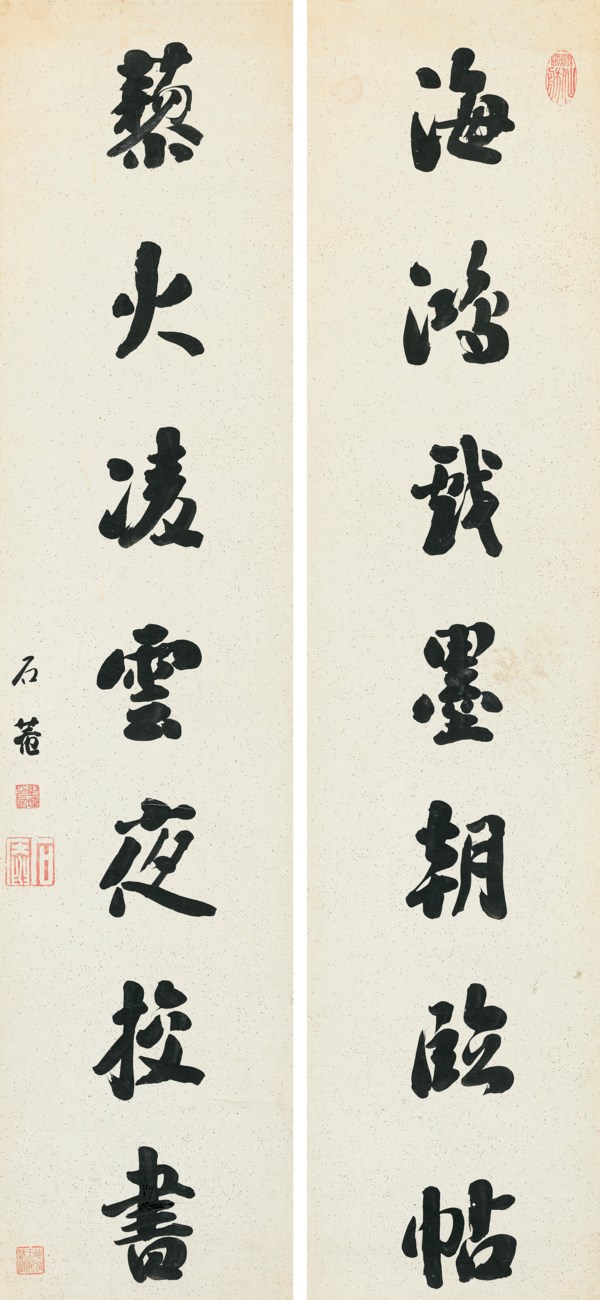 海鴻戲墨朝臨帖
藜火凌雲夜挍書
石菴